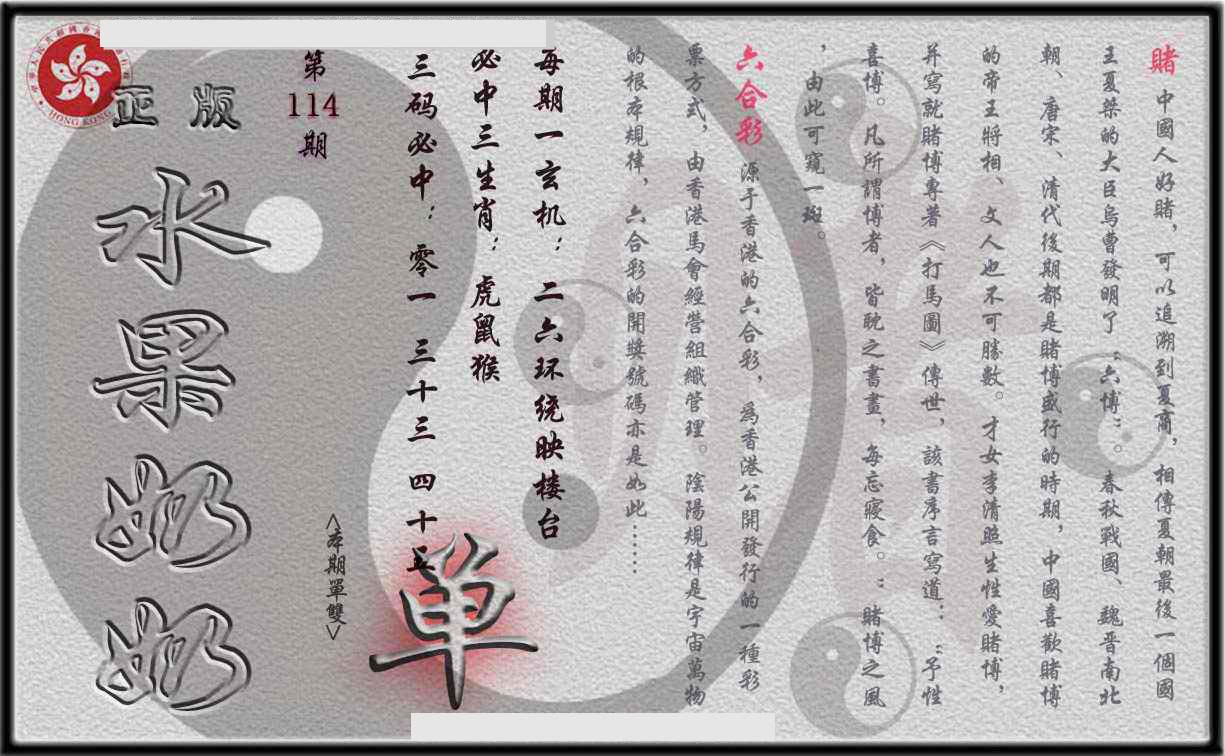 賭 中國人好賭，可以追溯到夏商，相傳夏朝最後一個國
王夏桀的大臣烏曹發明了“六博”。春秋戰國、魏晋南北
朝、唐宋、清代後期都是賭博盛行的時期，中國喜歡賭博
的帝王將相、文人也不可勝數。才女李清照生性愛賭博，
并寫就賭博專著《打馬圖》傳世，該書序言寫道：“予性
喜博。凡所謂博者，皆耽之書畫，每忘寢食。“賭博之風
，由此可窺一斑。
六合彩 源于香港的六合彩，為香港公開發行的一種彩
票方式，由香港馬會經營組織管理。陰陽規律是宇宙萬物
的根本規律，六合彩的開獎號碼亦是如此……
每期一玄机：二六环绕映楼台
必中三生肖：虎鼠猴
三码必中：零一 三十三 四十五
单
<本期單雙>
第
114
期
正版
水果奶奶
HONG KONG